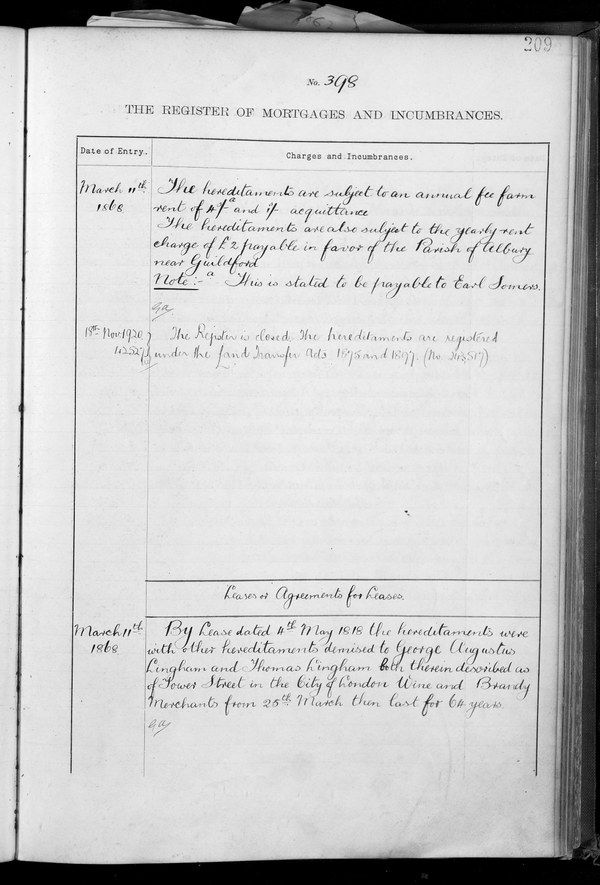 209
No. 398
THE REGISTER OF MORTGAGES AND INCUMBRANCES.
Date of Entry.
Charges and Incumbrances.
March 11th
1868
The hereditaments are subject to an annual fee farm
rent of 4/- a and 1/- acquittance
The hereditaments are also subject to the yearly rent
charge of £2 payable in favor of the Parish of Albury
near Guildford
Note:- a This is stated to be payable to Earl Somers.
18th Nov 1920
The Register is closed. The hereditaments are registered
under the Land Transfer Acts 1875 and 1897.
Leases or Agreements for Leases.
March 11th
1868
By Lease dated 4th May 1818 the hereditaments were
with other hereditaments demised to George Augustus
Lingham and Thomas Lingham both therein described as
of Tower Street in the City of London Wine and Brandy
Merchants from 25th March then last for 64 years.